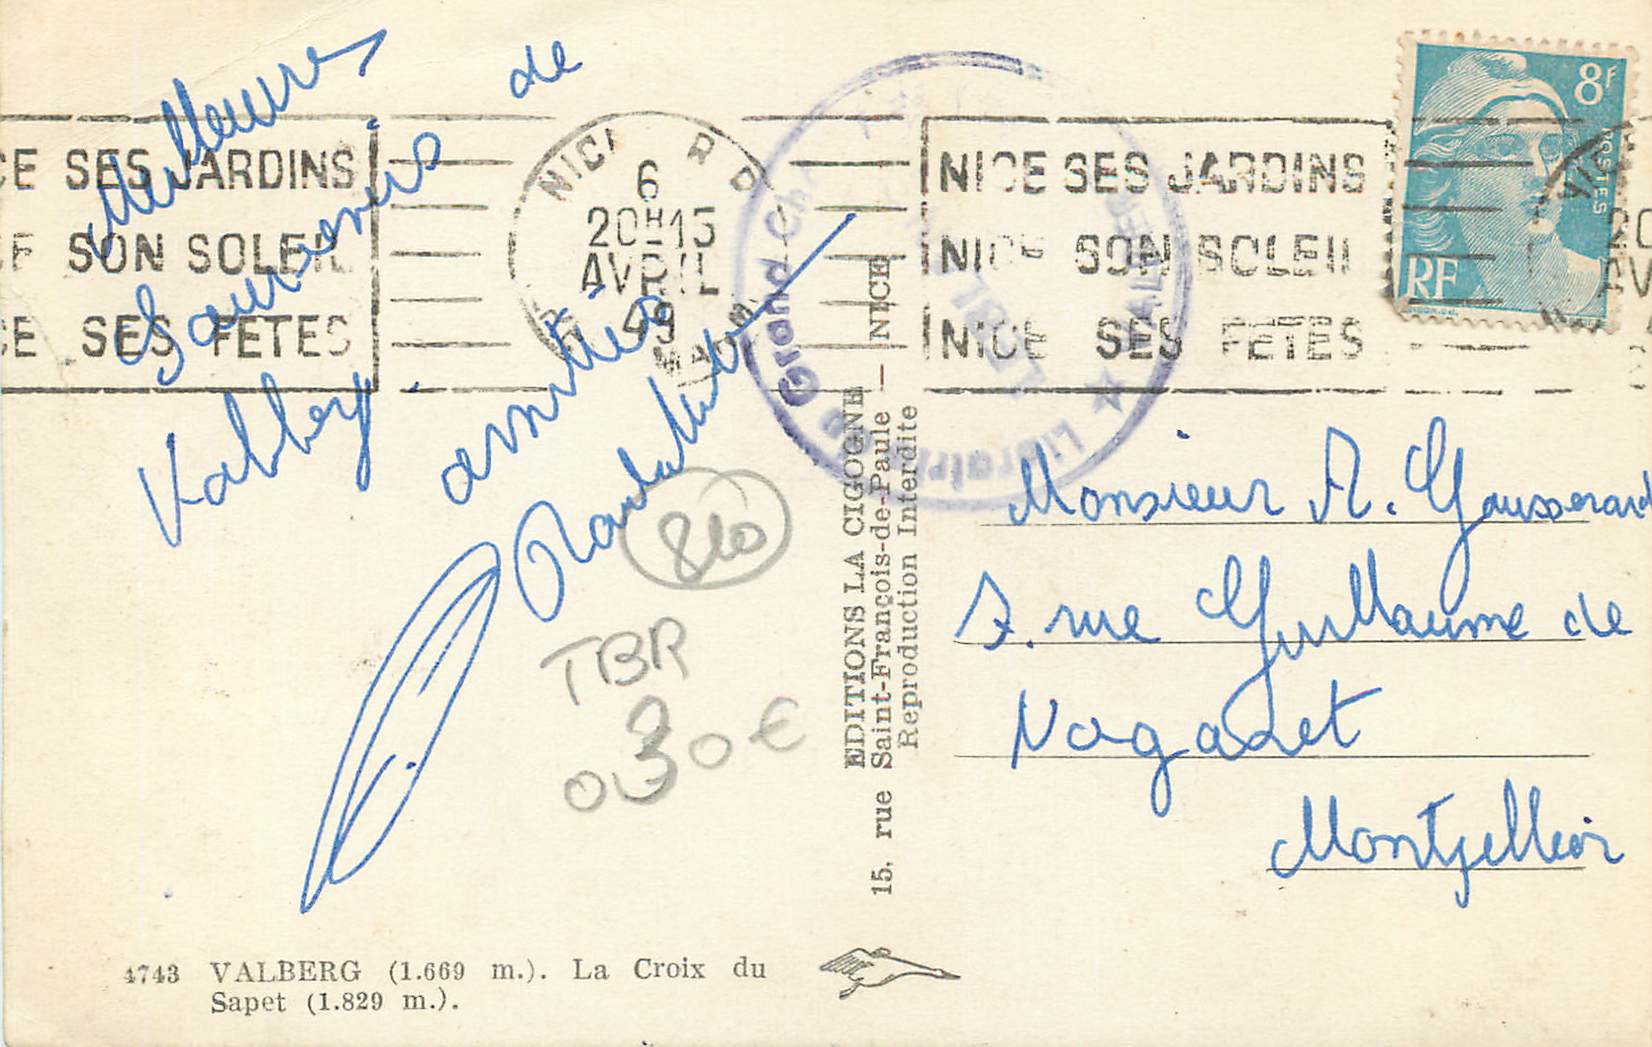 Meilleurs
Souvenirs de
Valberg.
amitiés
810
TBR
0,30€
CE SES JARDINS
CE SON SOLEIL
CE SES FETES
NICE R P
6
20H15
AVRIL
49
NICE SES JARDINS
NICE SON SOLEIL
NICE SES FETES
Librairie du Grand
VALBERG
8F
POSTES
RF
EDITIONS LA CIGOGNE
15, rue Saint-François-de-Paule — NICE
Reproduction Interdite
Monsieur A. Gausserand
7. rue Guillaume de
Nogaret
Montpellier
4743 VALBERG (1.669 m.). La Croix du
Sapet (1.829 m.).